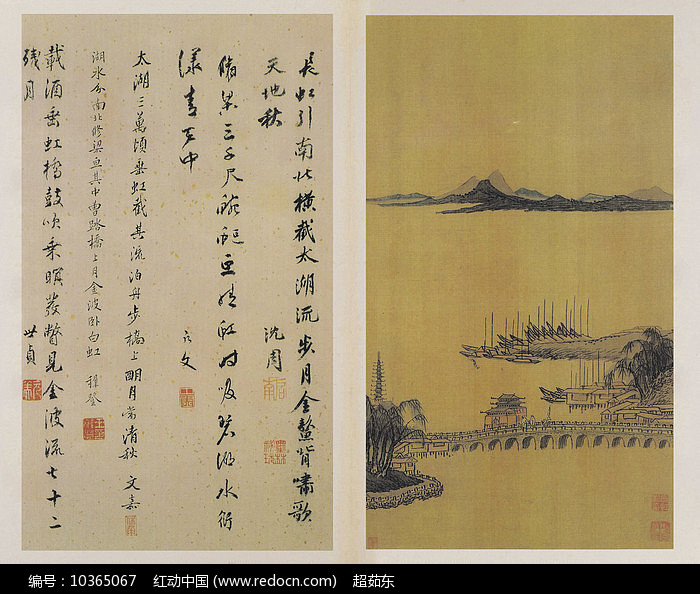 長虹引南北橫截太湖流步月金鰲背嘯歌
天地秋 沈周
脩梁三千尺蜿蜒亘晴虹時吸碧湖水衍
漾青天中 文
太湖三萬頃垂虹截其流泊舟步橋上明月常清秋 文嘉
湖水分南北修梁亘其中曾踏橋上月金波卧白虹 穉登
載酒垂虹橋鼓吹乘暝發瞥見金波流七十二
殘月 世貞
编号：10365067 红动中国 (www.redocn.com) 超茹东